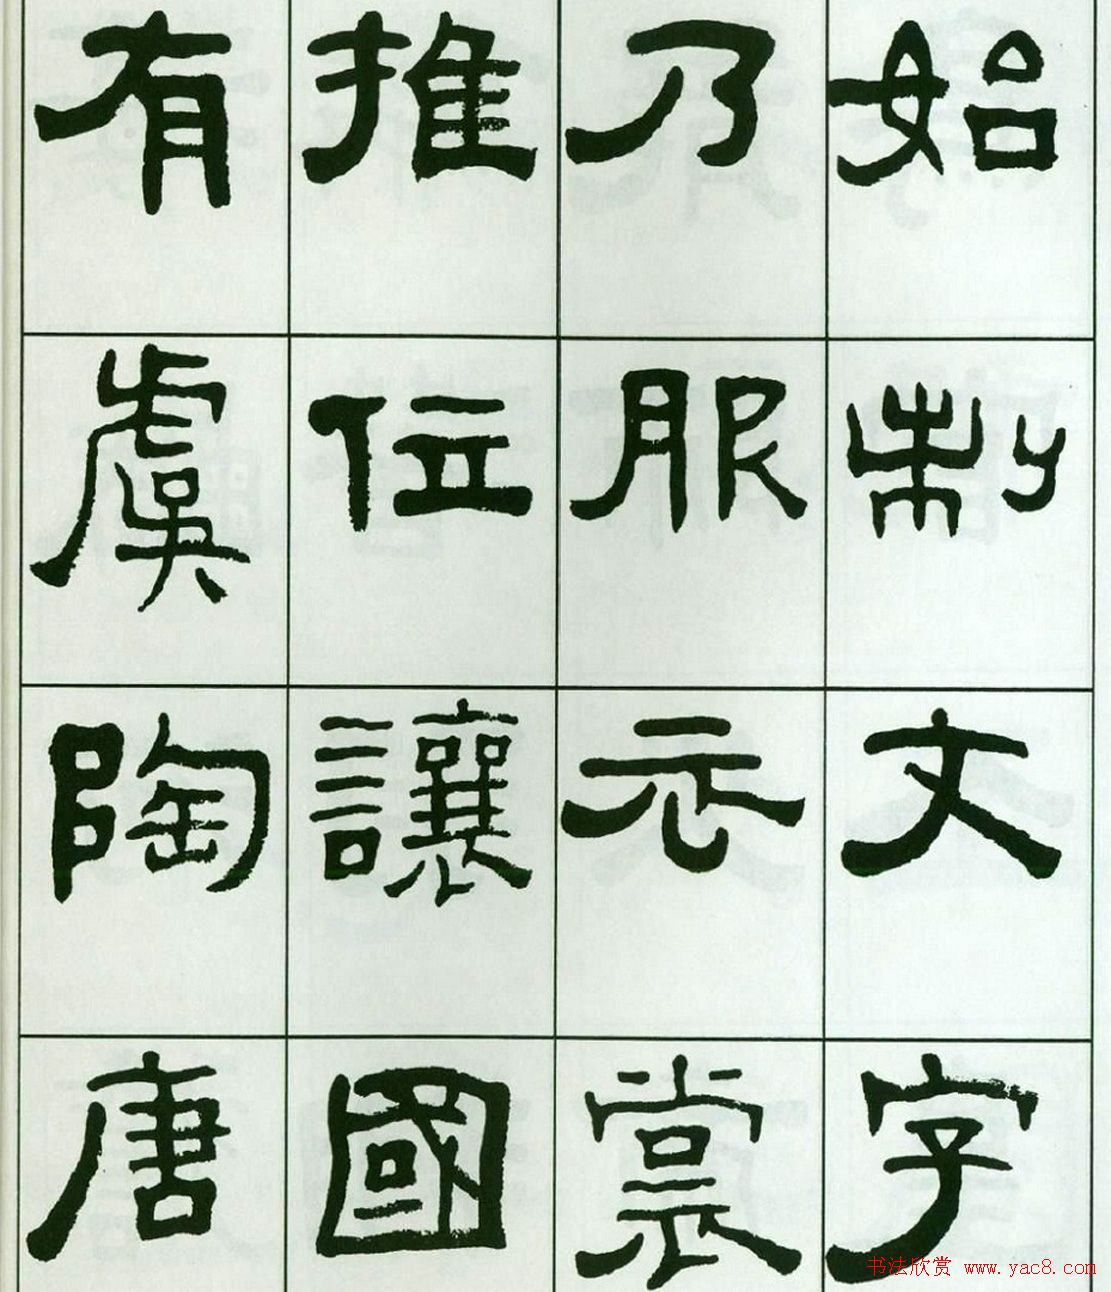 始制文字
乃服衣裳
推位讓國
有虞陶唐
书法欣赏 www.yac8.com